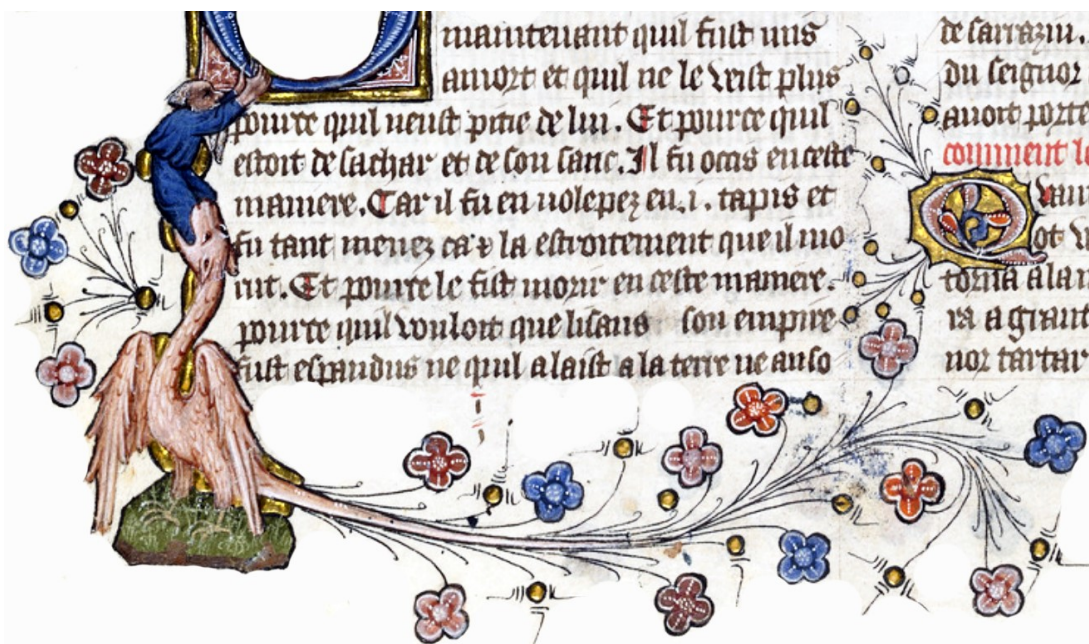 maintenant quil fust mis
amort et quil ne le veist plus
pource quil neust pitie de lui. Et pource quil
estoit de sachar et de son sanc. Il fu occis en ceste
maniere. Car il fu en uolepez en .i. tapis et
fu tant menez ca et la estroitement que il mo
rut. Et pource le fist morir en ceste maniere.
pource quil vouloit que li sans son empire
fust espandus ne quil alaist a la terre ne auso
de sarrazin.
du seignor
auoit porte
comment le
ot
torna a la
ra a grant
nor tartar